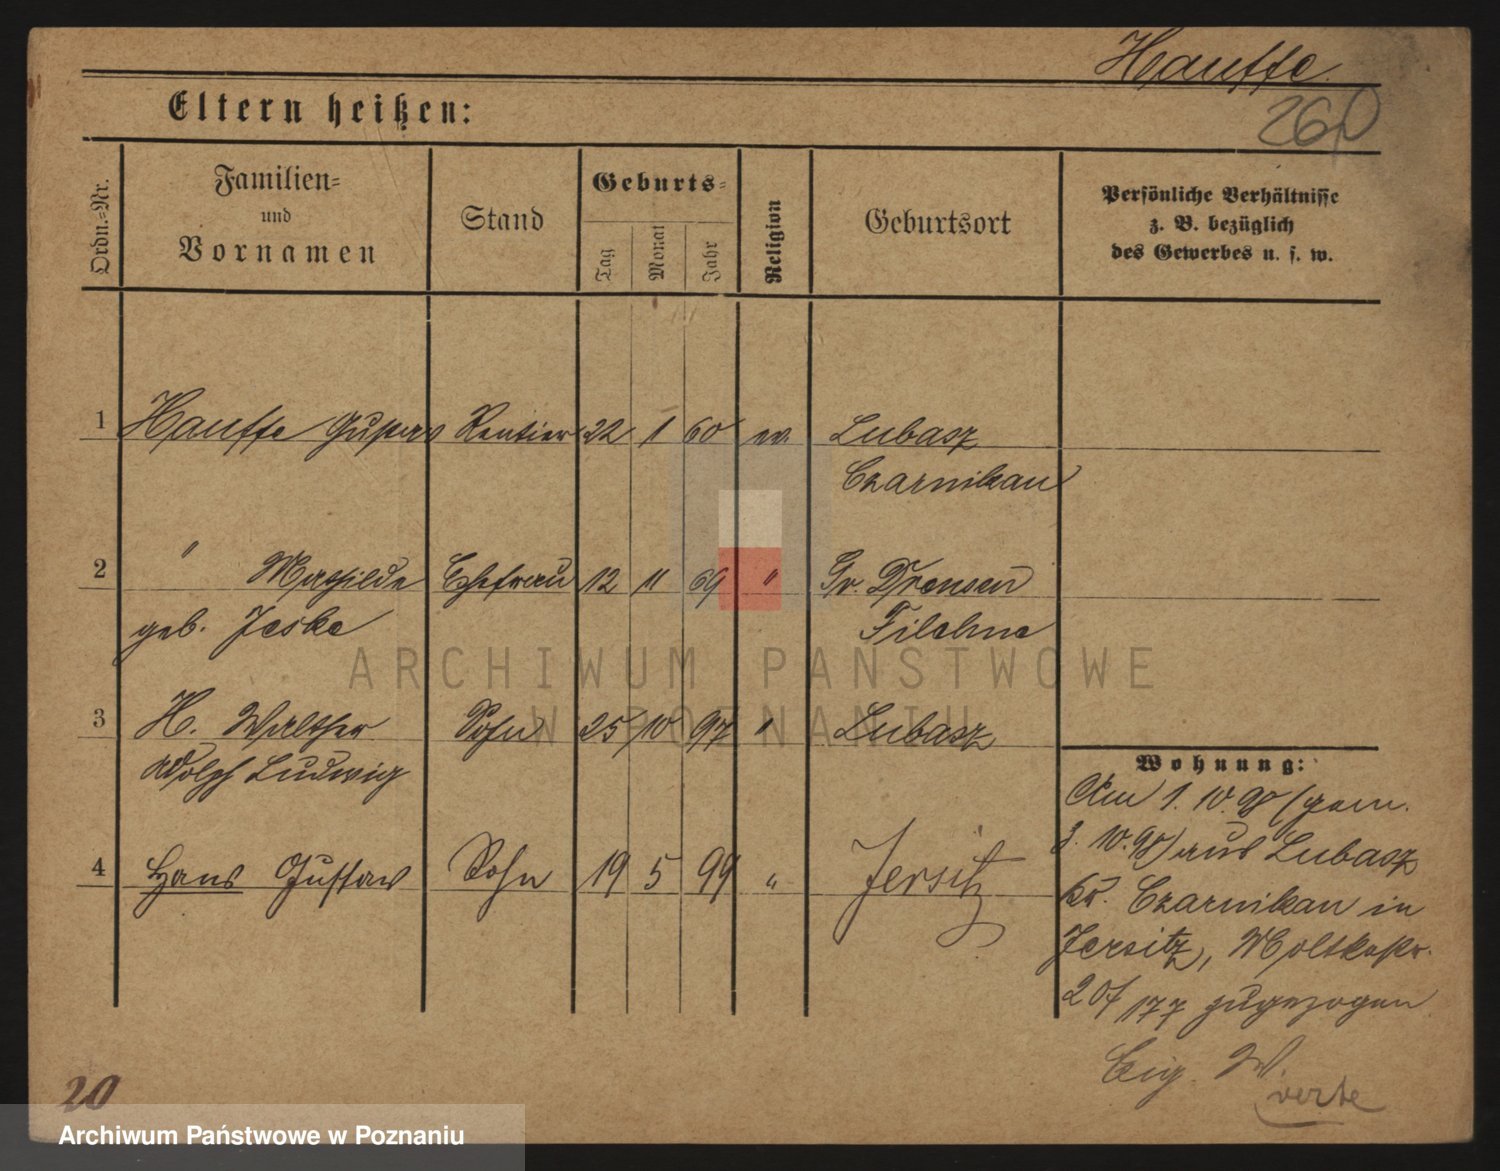 Hauffe.
260
Eltern heißen:
Ordn.=Nr.
Familien=
und
Vornamen
Stand
Geburts=
Tag
Monat
Jahr
Religion
Geburtsort
Persönliche Verhältnisse
z. B. bezüglich
des Gewerbes u. s. w.
1 Hauffe Gustav Rentier 22 1 60 ev. Lubasz
Czarnikau
2 " Mathilde Ehefrau 12 11 69 " Gr. Drensen
geb. Jeske Filehne
3 H. Walther Sohn 25 10 97 " Lubasz
Adolph Ludwig
4 Hans Gustav Sohn 19 5 99 " Jersitz
Wohnung:
Am 1. 10. 98 (gem.
3. 10. 98) aus Lubasz
Kr. Czarnikau in
Jersitz, Moltkestr.
177 zugezogen
Eig. W.
verte
20
ARCHIWUM PAŃSTWOWE
W POZNANIU
Archiwum Państwowe w Poznaniu